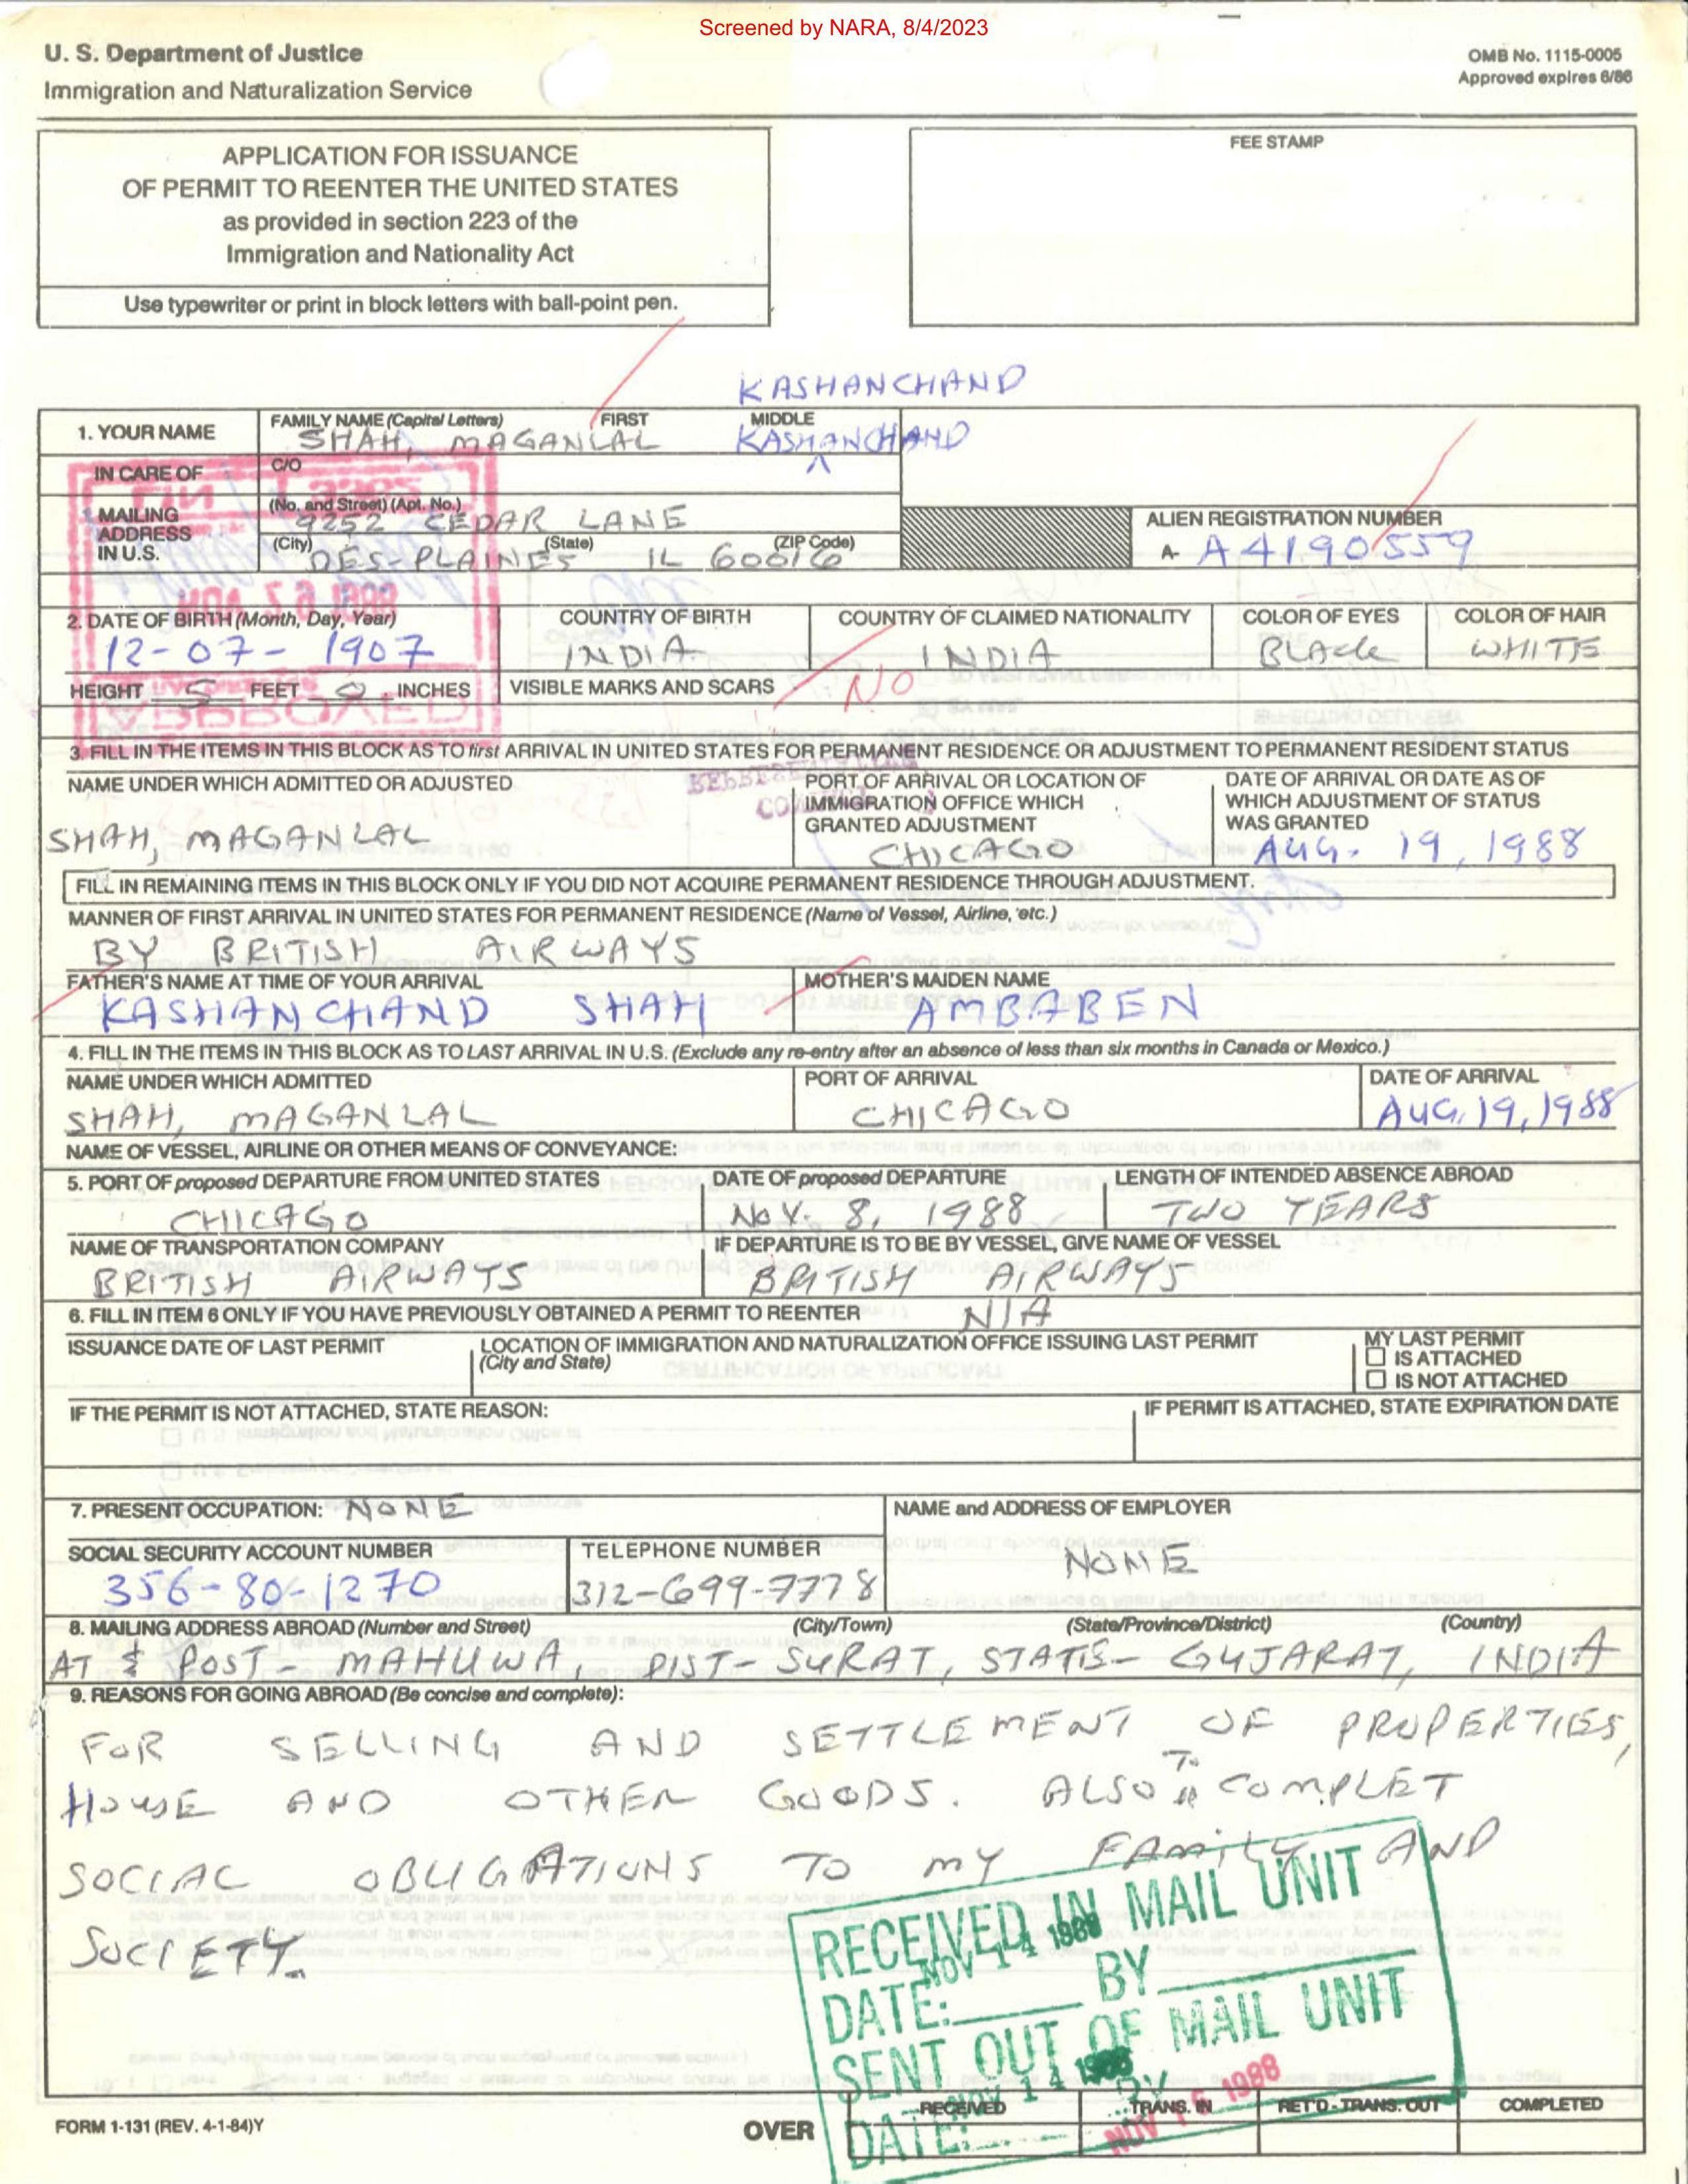 Screened by NARA, 8/4/2023
U. S. Department of Justice
Immigration and Naturalization Service
OMB No. 1115-0005
Approved expires 6/86
APPLICATION FOR ISSUANCE
OF PERMIT TO REENTER THE UNITED STATES
as provided in section 223 of the
Immigration and Nationality Act
Use typewriter or print in block letters with ball-point pen.
FEE STAMP
KASHANCHAND
1. YOUR NAME
FAMILY NAME (Capital Letters) FIRST MIDDLE
SHAH, MAGANLAL KASHANCHAND
IN CARE OF
C/O
MAILING ADDRESS IN U.S.
(No. and Street) (Apt. No.)
9252 CEDAR LANE
(City) (State) (ZIP Code)
DES-PLAINES IL 60016
ALIEN REGISTRATION NUMBER
A- A4190559
2. DATE OF BIRTH (Month, Day, Year)
12-07-1907
COUNTRY OF BIRTH
INDIA
COUNTRY OF CLAIMED NATIONALITY
INDIA
COLOR OF EYES
BLACK
COLOR OF HAIR
WHITE
HEIGHT 5 FEET 0 INCHES
VISIBLE MARKS AND SCARS NO
3. FILL IN THE ITEMS IN THIS BLOCK AS TO first ARRIVAL IN UNITED STATES FOR PERMANENT RESIDENCE OR ADJUSTMENT TO PERMANENT RESIDENT STATUS
NAME UNDER WHICH ADMITTED OR ADJUSTED
SHAH, MAGANLAL
PORT OF ARRIVAL OR LOCATION OF
IMMIGRATION OFFICE WHICH
GRANTED ADJUSTMENT
CHICAGO
DATE OF ARRIVAL OR DATE AS OF
WHICH ADJUSTMENT OF STATUS
WAS GRANTED
AUG. 19, 1988
FILL IN REMAINING ITEMS IN THIS BLOCK ONLY IF YOU DID NOT ACQUIRE PERMANENT RESIDENCE THROUGH ADJUSTMENT.
MANNER OF FIRST ARRIVAL IN UNITED STATES FOR PERMANENT RESIDENCE (Name of Vessel, Airline, etc.)
BY BRITISH AIRWAYS
FATHER'S NAME AT TIME OF YOUR ARRIVAL
KASHANCHAND SHAH
MOTHER'S MAIDEN NAME
AMBABEN
4. FILL IN THE ITEMS IN THIS BLOCK AS TO LAST ARRIVAL IN U.S. (Exclude any re-entry after an absence of less than six months in Canada or Mexico.)
NAME UNDER WHICH ADMITTED
SHAH, MAGANLAL
PORT OF ARRIVAL
CHICAGO
DATE OF ARRIVAL
AUG. 19, 1988
NAME OF VESSEL, AIRLINE OR OTHER MEANS OF CONVEYANCE:
5. PORT OF proposed DEPARTURE FROM UNITED STATES
CHICAGO
DATE OF proposed DEPARTURE
NOV. 8, 1988
LENGTH OF INTENDED ABSENCE ABROAD
TWO YEARS
NAME OF TRANSPORTATION COMPANY
BRITISH AIRWAYS
IF DEPARTURE IS TO BE BY VESSEL, GIVE NAME OF VESSEL
BRITISH AIRWAYS
6. FILL IN ITEM 6 ONLY IF YOU HAVE PREVIOUSLY OBTAINED A PERMIT TO REENTER N/A
ISSUANCE DATE OF LAST PERMIT
LOCATION OF IMMIGRATION AND NATURALIZATION OFFICE ISSUING LAST PERMIT
(City and State)
MY LAST PERMIT
☐ IS ATTACHED
☐ IS NOT ATTACHED
IF THE PERMIT IS NOT ATTACHED, STATE REASON:
IF PERMIT IS ATTACHED, STATE EXPIRATION DATE
7. PRESENT OCCUPATION: NONE
NAME and ADDRESS OF EMPLOYER
NONE
SOCIAL SECURITY ACCOUNT NUMBER
356-80-1270
TELEPHONE NUMBER
312-699-7778
8. MAILING ADDRESS ABROAD (Number and Street) (City/Town) (State/Province/District) (Country)
AT & POST- MAHUWA, DIST- SURAT, STATE- GUJARAT, INDIA
9. REASONS FOR GOING ABROAD (Be concise and complete):
FOR SELLING AND SETTLEMENT OF PROPERTIES,
HOUSE AND OTHER GOODS. ALSO TO COMPLET
SOCIAL OBLIGATIONS TO MY FAMILY AND
SOCIETY.
RECEIVED IN MAIL UNIT
NOV 14 1988
DATE: BY
SENT OUT OF MAIL UNIT
NOV 14 1988
DATE: BY
NOV 16 1988
RECEIVED
TRANS. IN
RET'D - TRANS. OUT
COMPLETED
FORM I-131 (REV. 4-1-84)Y
OVER